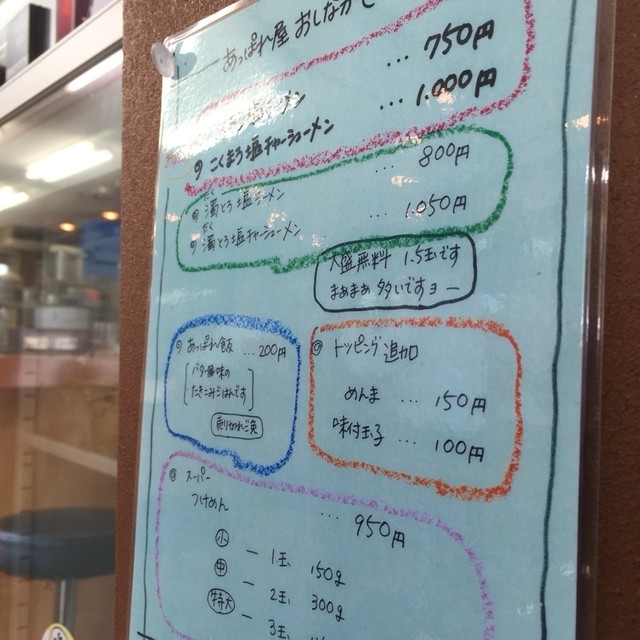 あっぱれ屋 おしながき
塩ラーメン … 750円
こくまろ塩チャーシューメン … 1.000円
濁とろ塩ラーメン … 800円
濁とろ塩チャーシューメン … 1.050円
大盛無料 1.5玉です
まぁまぁ多いですヨー
あっぱれ飯 … 200円
バター風味の
たきこみごはんです
売り切れ次
◎ トッピング追加
めんま … 150円
味付玉子 … 100円
スーパー
つけめん … 950円
小 ー 1玉 150g
中 ー 2玉 300g
特大 ー 3玉